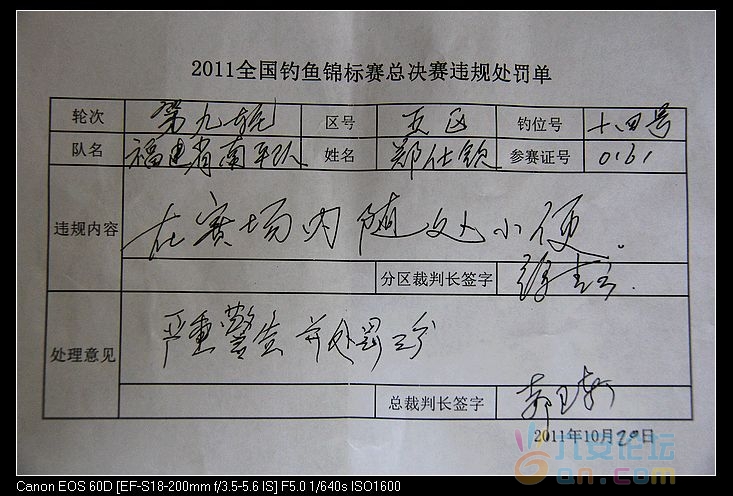 2011全国钓鱼锦标赛总决赛违规处罚单
轮次 第九轮 区号 五区 钓位号 十四号
队名 福建省南平队 姓名 郑仕钦 参赛证号 0161
违规内容 在赛场内随处小便.
分区裁判长签字
处理意见 严重警告并处罚三分
总裁判长签字
2011年10月20日
六安论坛
Canon EOS 60D [EF-S18-200mm f/3.5-5.6 IS] F5.0 1/640s ISO1600